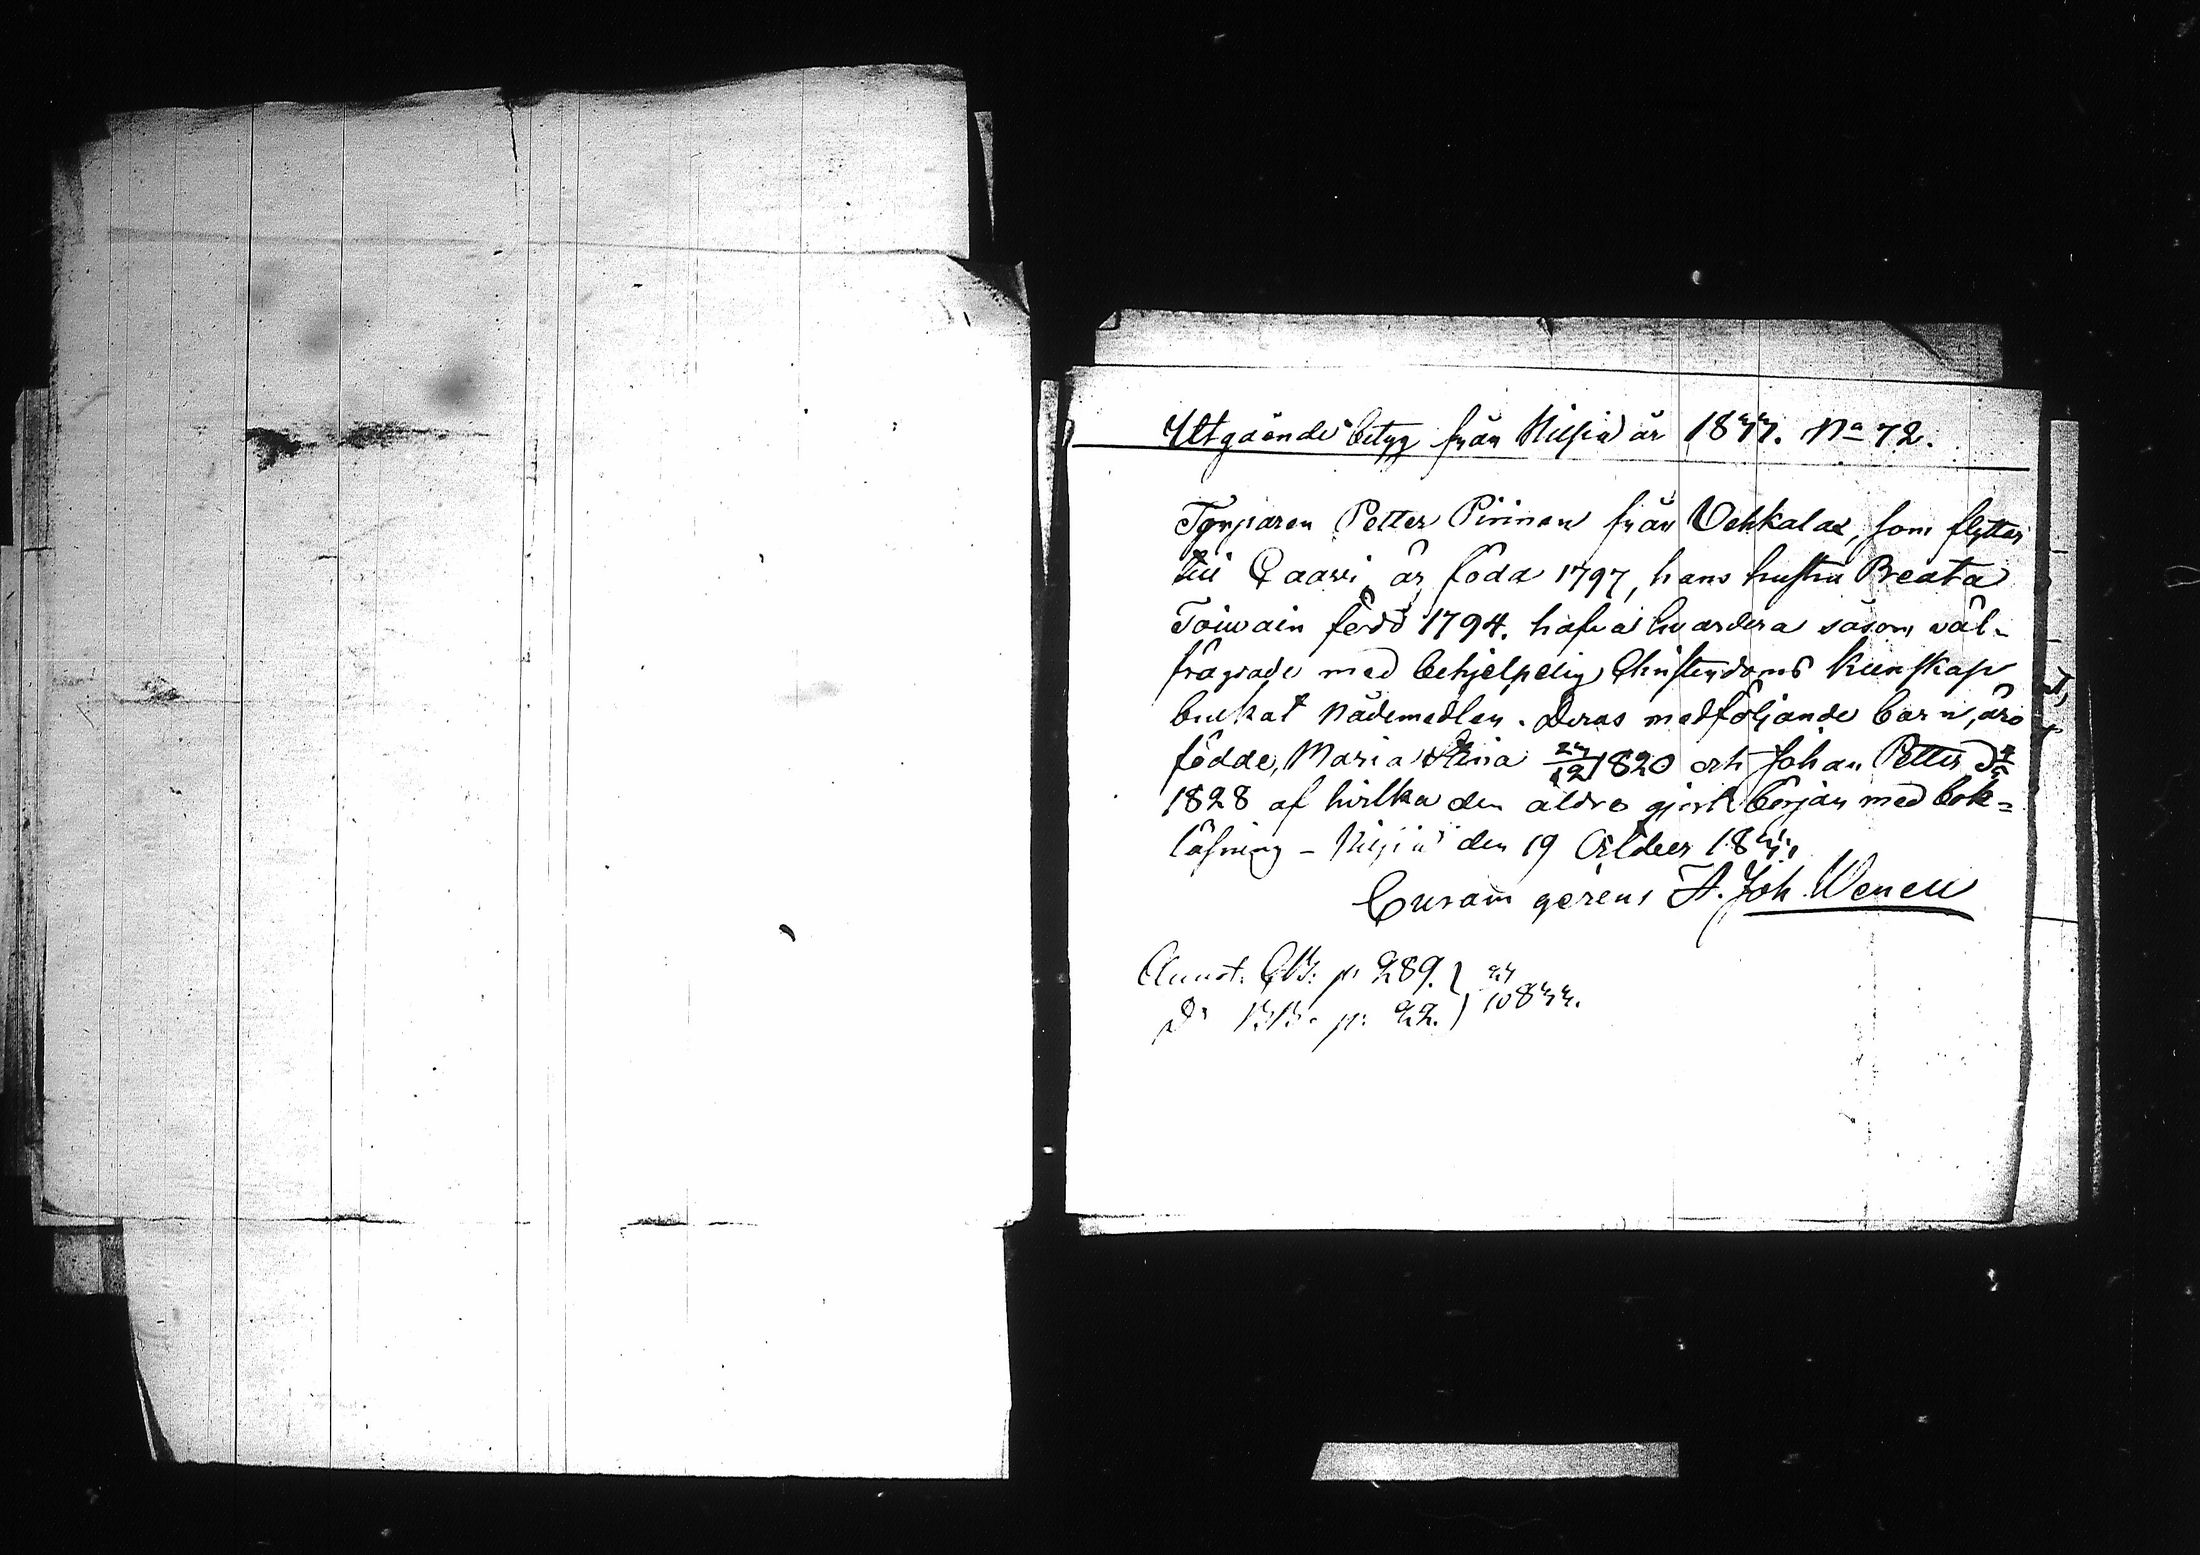 Utgående betyg från Nilsiä år 1833. No 72.
Torparen Petter Pirinen från Vehkalax, som flyttar
till Laari är föda 1797, hans hustru Beata
Toiwain född 1794. hafva hvardera såsom väl-
frägdade med behjelpelig Christendoms kunskap
brukat nådemedlen. Deras medföljande barn, äro
födde, Maria Stina 27/12 1820 och Johan Petter
1828 af hvilka den äldre gjort början med bok=
läsning - Nilsiä den 19 October 1833.
Curam gerens A. Joh Wenell
Annot. LB: p. 289. }
Do BB. p: 22. }